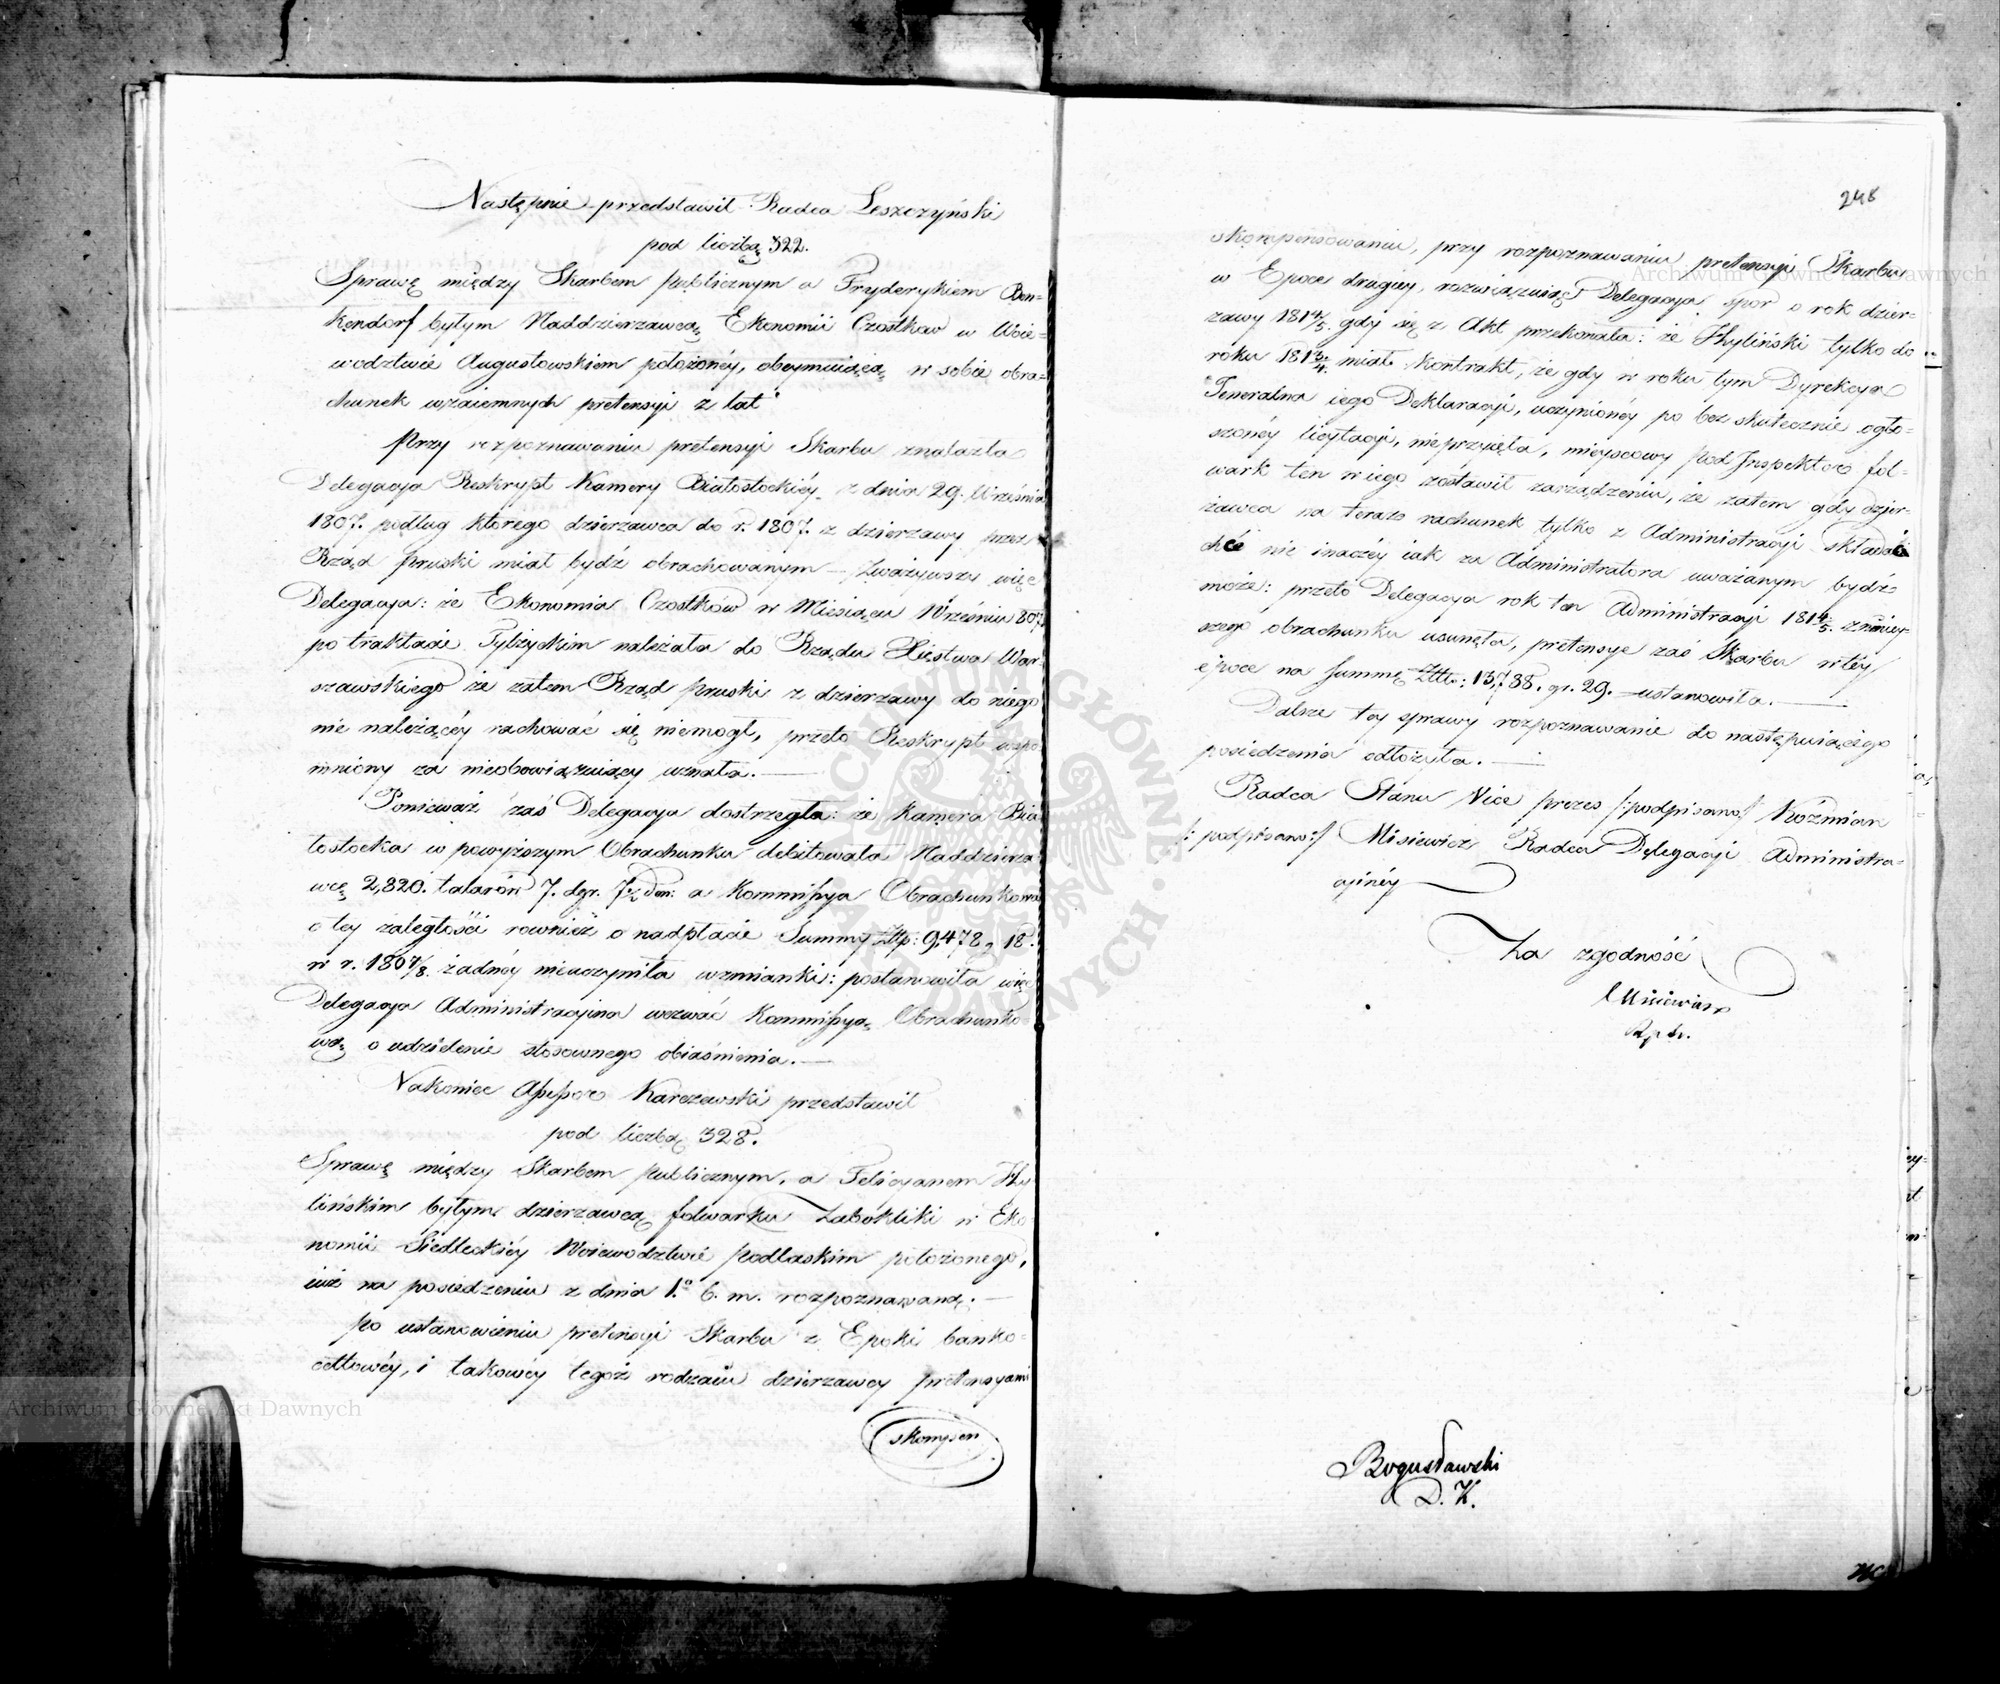 Następnie przedstawił Radca Leszczyński
pod liczbą 322.
Sprawę między Skarbem publicznym a Fryderykiem Ben=
kendorf byłym Naddzierzawcą Ekonomii Czostkow w Woie=
wodztwie Augustowskiem położonéy, obeymuiącą w sobie obra=
chunek wzaiemnych pretensyi z lat
Przy rozpoznawaniu pretensyi Skarbu znalazła
Delegacya Reskrypt Kamery Białostockiéy z dnia 29. Września
1807. podług którego dzierzawca do r. 1807. z dzierzawy przez
Rząd pruski miał bydź obrachowanym — Zważywszy więc
Delegacya: że Ekonomia Czostków w Miesiącu Wrześniu 807.
po traktacie Tylżyckim należała do Rządu Xięstwa War
szawskiego że zatem Rząd pruski z dzierzawy do niego
nie należącéy rachować się niemogł, przeto Reskrypt wspo
mniony za nieobowiązuiący uznała. —
Ponieważ zaś Delegacya dostrzegła: że Kamera Bia
łostocka w powyższym Obrachunku debitowała Naddzierza
wcę 2,820. talarów 7. dgr. 7½ den: a Kommissya Obrachunkowa
o tey zaległości rownież o nadpłacie Summy Złtp: 9,478 g 18.
w r. 1807/8. żadnéy nieuczyniła wzmianki: postanowiła więc
Delegacya Administracyina wezwać Kommissyą Obrachunko
wą o udzielenie stosownego obiaśnienia. —
Nakoniec Assessor Karczewski przedstawił
pod liczbą 328.
Sprawę między Skarbem publicznym, a Felicyanem Hy
lińskim byłym dzierzawcą folwarku Zabokliki w Eko
nomii Siedleckiéy Woiewodztwie podlaskim położonego,
iuż na posiedzeniu z dnia 1.° b. m. rozpoznawaną. —
po ustanowieniu pretensyi Skarbu z Epoki banko=
cetlowéy, i takowéy tegoż rodzaiu dzierzawcy pretensyami
skompen
248
skompensowaniu, przy rozpoznawaniu pretensyi Skarbu
w Epoce drugiey, rozwiązuiąc Delegacya spor o rok dzier=
zawy 1814/5. gdy się z Akt przekonała: że Hyliński tylko do
roku 1813/4. miał kontrakt, że gdy w roku tym Dyrekcya
Generalna iego Deklaracyi, uczynionéy po bezskutecznie ogło=
szonéy licytacyi, nieprzyięła, mieyscowy pod Inspektor fol=
wark ten w iego zostawił zarządzeniu, że zatem gdy dzier=
żawca na teraz rachunek tylko z Administracyi składać
chce nie inaczéy iak za Administratora uważanym bydź
może: przeto Delegacya rok ten Administracyi 1814/5. z niniey=
szego obrachunku usunęła, pretensye zaś Skarbu w téy
epoce na summę Złtt: 13,788. gr. 29. — ustanowiła. —
Dalsze tey sprawy rozpoznawanie do następuiącego
posiedzenia odłożyła. —
Radca Stanu Vice prezes /:podpisano:/ Koźmian
/:podpisano:/ Misiewicz Radca Delegacyi Administra=
cyinéy
Za zgodność
Misiewicz
Bogusławski
D. K.